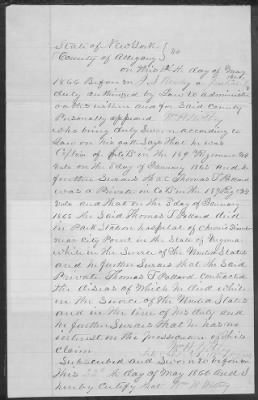 State of New York }
County of Allegany } SS
on this day of May
1866 Before me
duly authorized by Law to administer
oaths within and for said County
Personally appeared
who being duly Sworn according to
Law on his oath Says that he was
of Co B on the 189 Regiment NY
Vols on the 3 day of January 1865 and he
further Swears that Thomas T Pollard
was a Private in Co B in the 189 Reg NY
Vols and that on the 3 day of January
1865 the Said Thomas T Pollard died
in Park Station hospital of Chronic
near City Point in the State of Virginia
while in the Service of the United States
and he further Swears that the Said
Private Thomas T Pollard contracted
the disease of which he died while
in the Service of the United States
and in the line of his duty and
he further Swears that he has no
interest in the prosecution of this
claim
Subscribed and Sworn to before me
This day of May 1866 and I
hereby Certify that